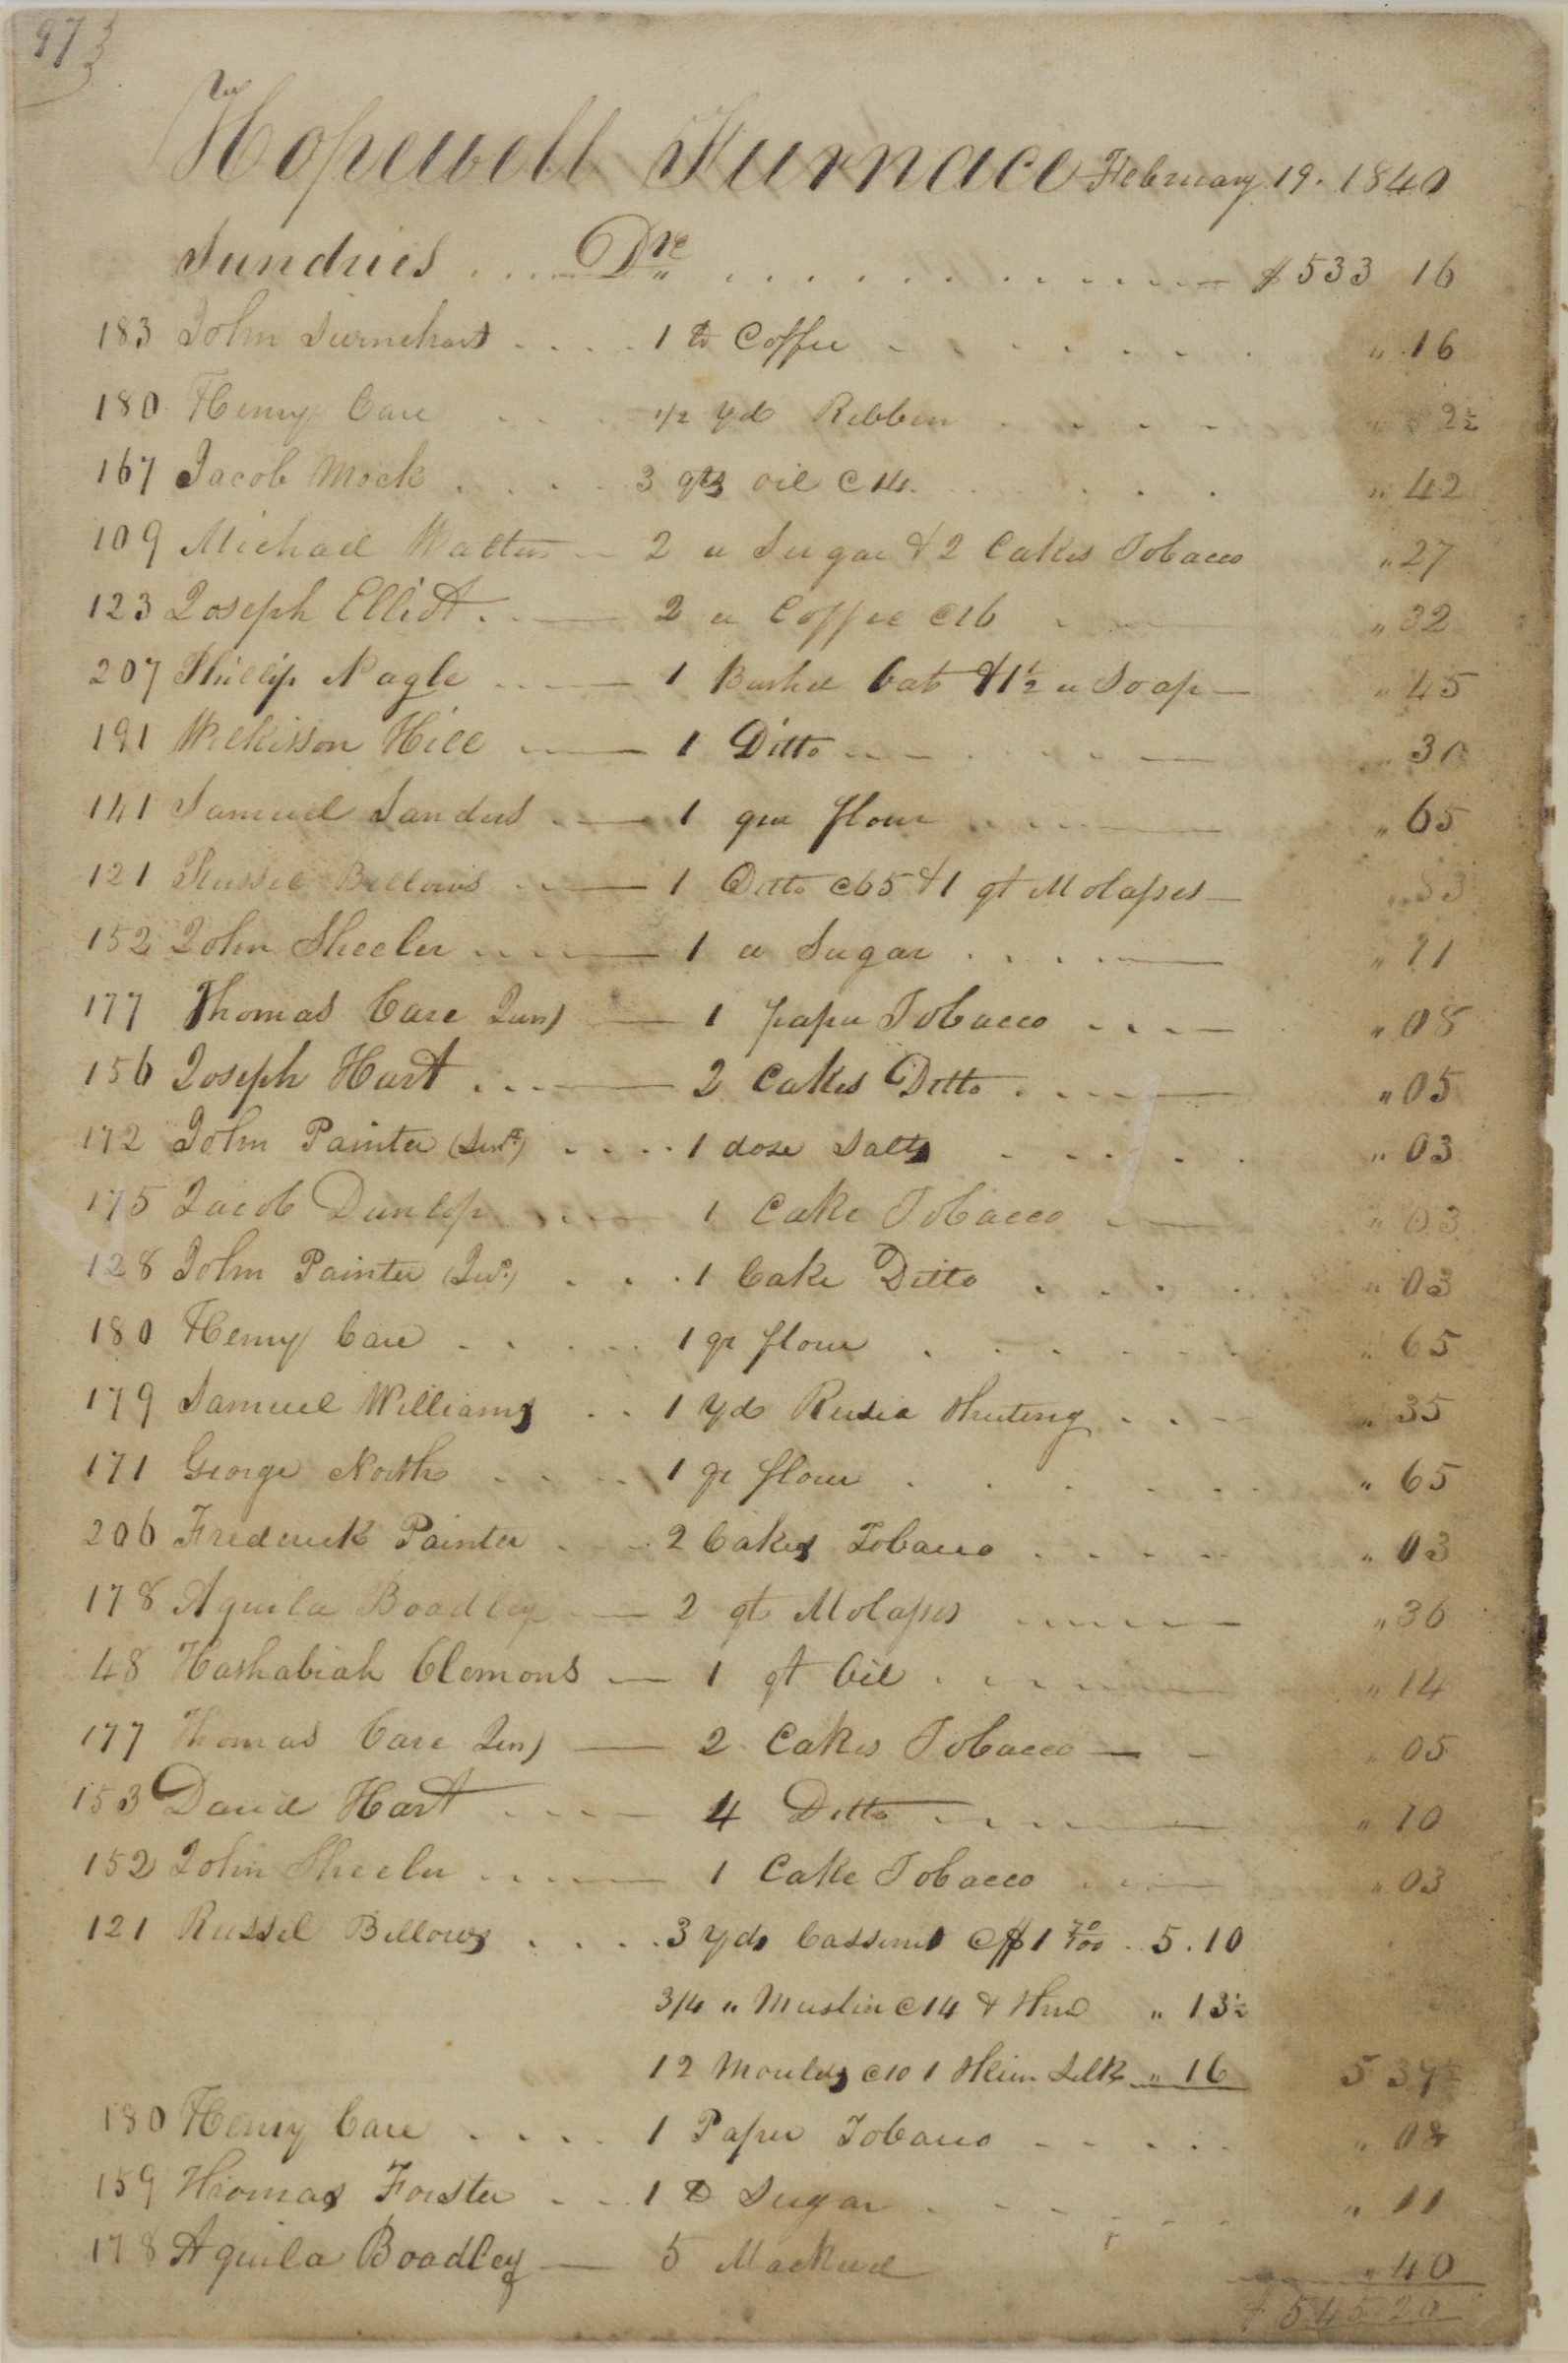 97
Hopewell Furnace February 19. 1840
Sundries .... Drs ............ $533 16
183 John .... 1 lb Coffee ...... " 16
180 Henry Care ... 1/2 yd Ribben .... " 2½
167 Jacob Mock .... 3 qts oil @ 14. ..... " 42
109 Michael Watters — 2 " Sugar & 2 Cakes Tobacco " 27
123 Joseph Elliot . — 2 " Coffee @16 . — " 32
207 Phillip Nagle ... — 1 Bushel Oats & 1½ " Soap — " 45
191 Wilkisson Hill ... — 1 Ditto ... — " 30
141 Samuel Sanders .. — 1 qur flour .... — " 65
121 Russel Bellows .. — 1 Ditto @65 & 1 qt Molasses — " 83
152 John Sheeler ... — 1 " Sugar .... — " 11
177 Thomas Care Junr — 1 paper Tobacco ... — " 08
156 Joseph Hart ... — 2 Cakes Ditto .... — " 05
172 John Painter (Senr) .... 1 dose Salts ..... " 03
175 Jacob Dunlop .... — 1 Cake Tobacco . — " 03
128 John Painter (Jur) ... 1 Cake Ditto .... " 03
180 Henry Care .... 1 qr flour ..... " 65
179 Samuel Williams .. 1 yd Rusia Sheeting .... " 35
171 George North .... 1 qr flour ...... " 65
206 Frederick Painter ... 2 Cakes Tobacco ..... " 03
178 Aquila Boadley — 2 qts Molasses .... — " 36
48 Hashabiah Clemons — 1 qt Oil .... — " 14
177 Thomas Care Junr — 2 Cakes Tobacco — - " 05
153 David Hart ... — 4 Ditto .... — " 10
152 John Sheeler ... — 1 Cake Tobacco ... — " 03
121 Russel Bellows .... 3 yds Cassinet @ $1 70/100 . 5.10
3/4 " Muslin @ 14 & Thrd " 13½
12 Moulds @10 1 Skein Silk " 16 5 37½
180 Henry Care .... 1 Paper Tobacco ..... " 08
159 Thomas Forster .. 1 lb Sugar ...... " 11
178 Aquila Boadley — 5 Mackrel " 40
$ 545 20